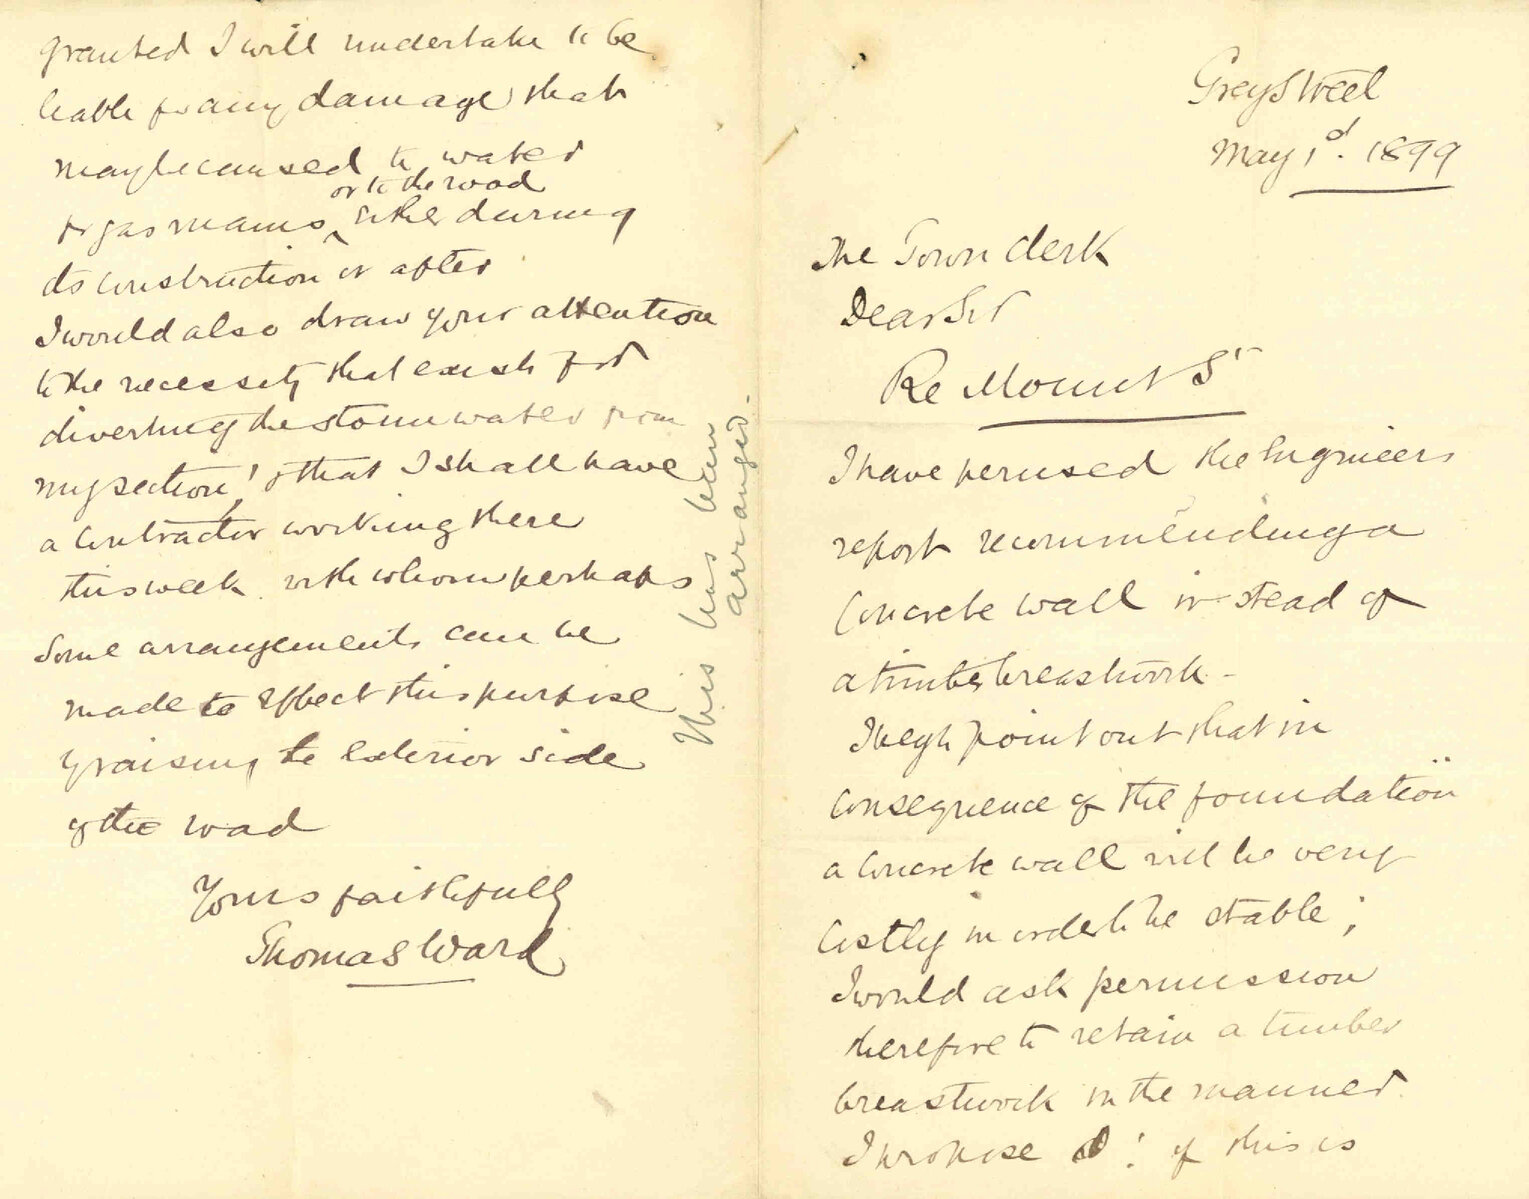 Grey Street
May 1d. 1899
The Town Clerk
Dear Sir
Re Mount St
I have perused the Engineers
report recommending a
Concrete wall in stead of
a timber breastwork -
I beg to point out that in
consequence of the foundation
a Concrete wall will be very
Costly in order to be stable ;
I would ask permission
therefore to retain a timber
breastwork in the manner
I propose : if this is
granted I will undertake to be
liable for any damage that
may be caused to water
or to the road
or gas mains ^ either during
its construction or after
I would also draw your attention
to the necessity that exists for
diverting the storm water from
my section, & that I shall have
a Contractor working there
this week with whom perhaps
Some arrangements can be
made to effect this purpose
by raising the exterior side
of the road
Yours faithfully
Thomas Ward
This has been
arranged.